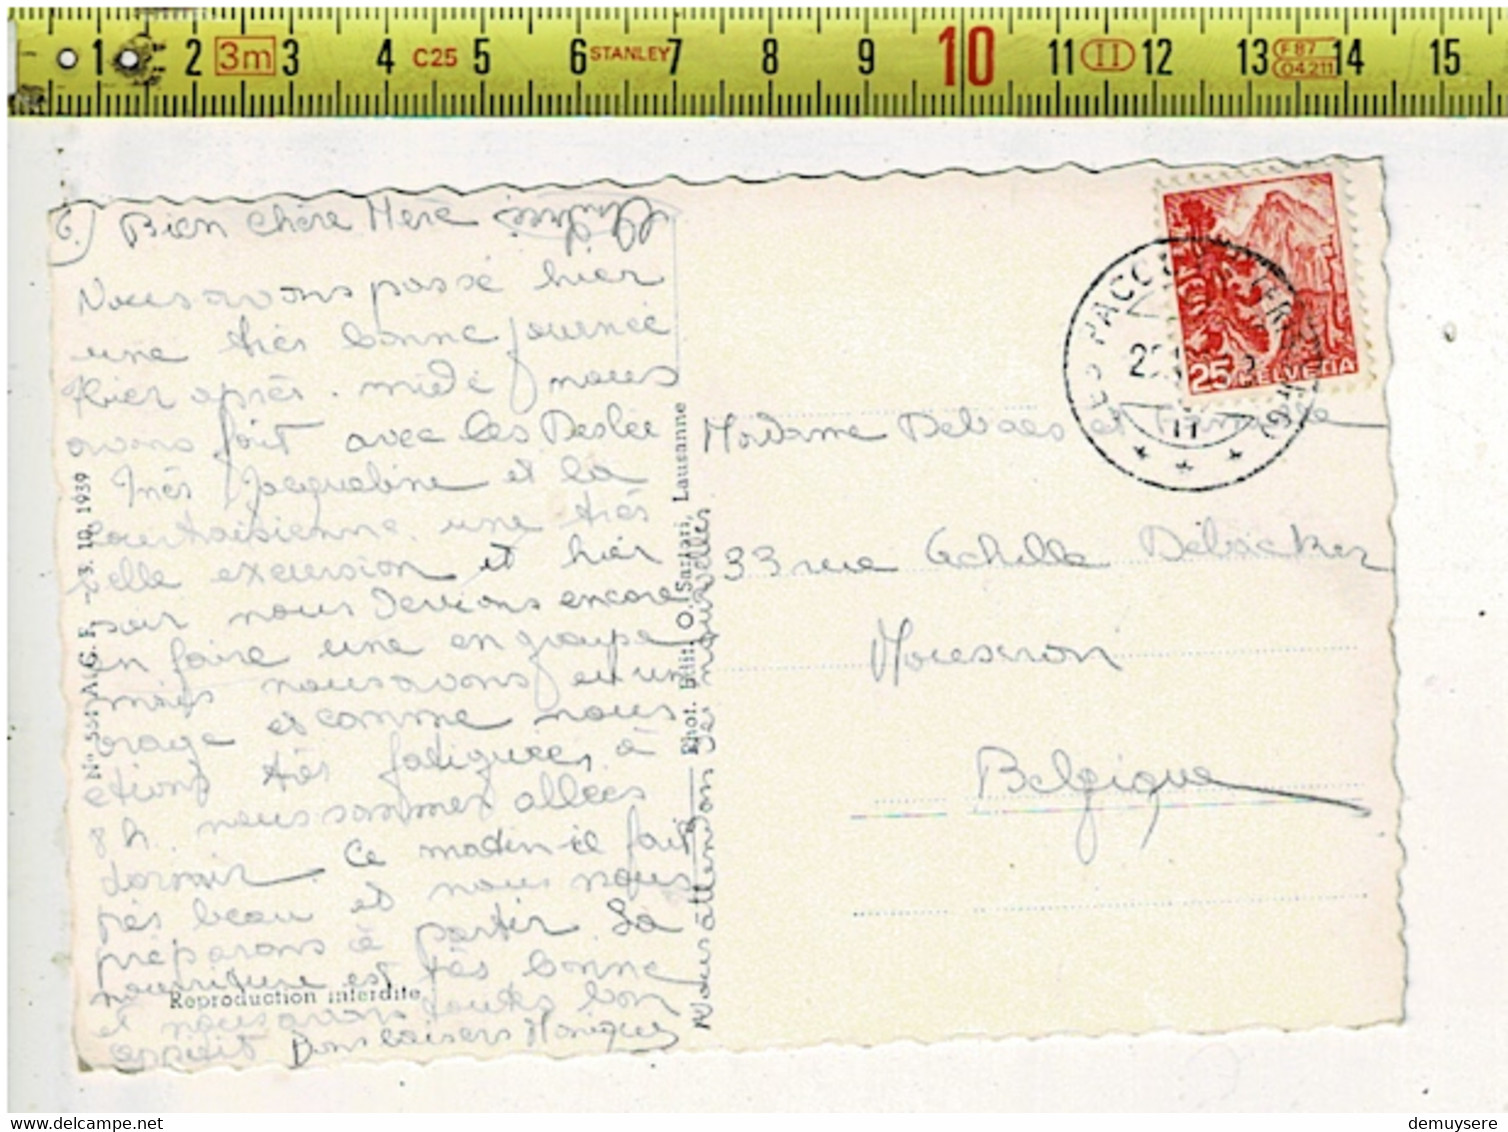 1 2 3m 3 4 C25 5 6 STANLEY 7 8 9 10 11 II 12 13 F87 04211 14 15
6) Bien chère Mère
Nous avons passé hier
une très bonne journée
Hier après-midi nous
avons fait avec les
Inès Jacqueline et la
courtraisienne une très
belle excursion et hier
soir nous devions encore
en faire une en groupe
mais nous avons eu un
orage et comme nous
étions très fatiguées à
8h nous sommes allées
dormir. Ce matin il fait
très beau et nous nous
préparons à partir. La
nourriture est très bonne
et nous avons toutes bon
appétit Bons baisers Monique
Reproduction interdite
No 55: A. G. F. - 3. 10. 1939
Phot. Edit. O. Sartori, Lausanne
Nous attendons des nouvelles
25 HELVETIA
LES PACCOTS
Madame Debaes et Famille
33 rue Achille Debacker
Mouscron
Belgique
demuysere